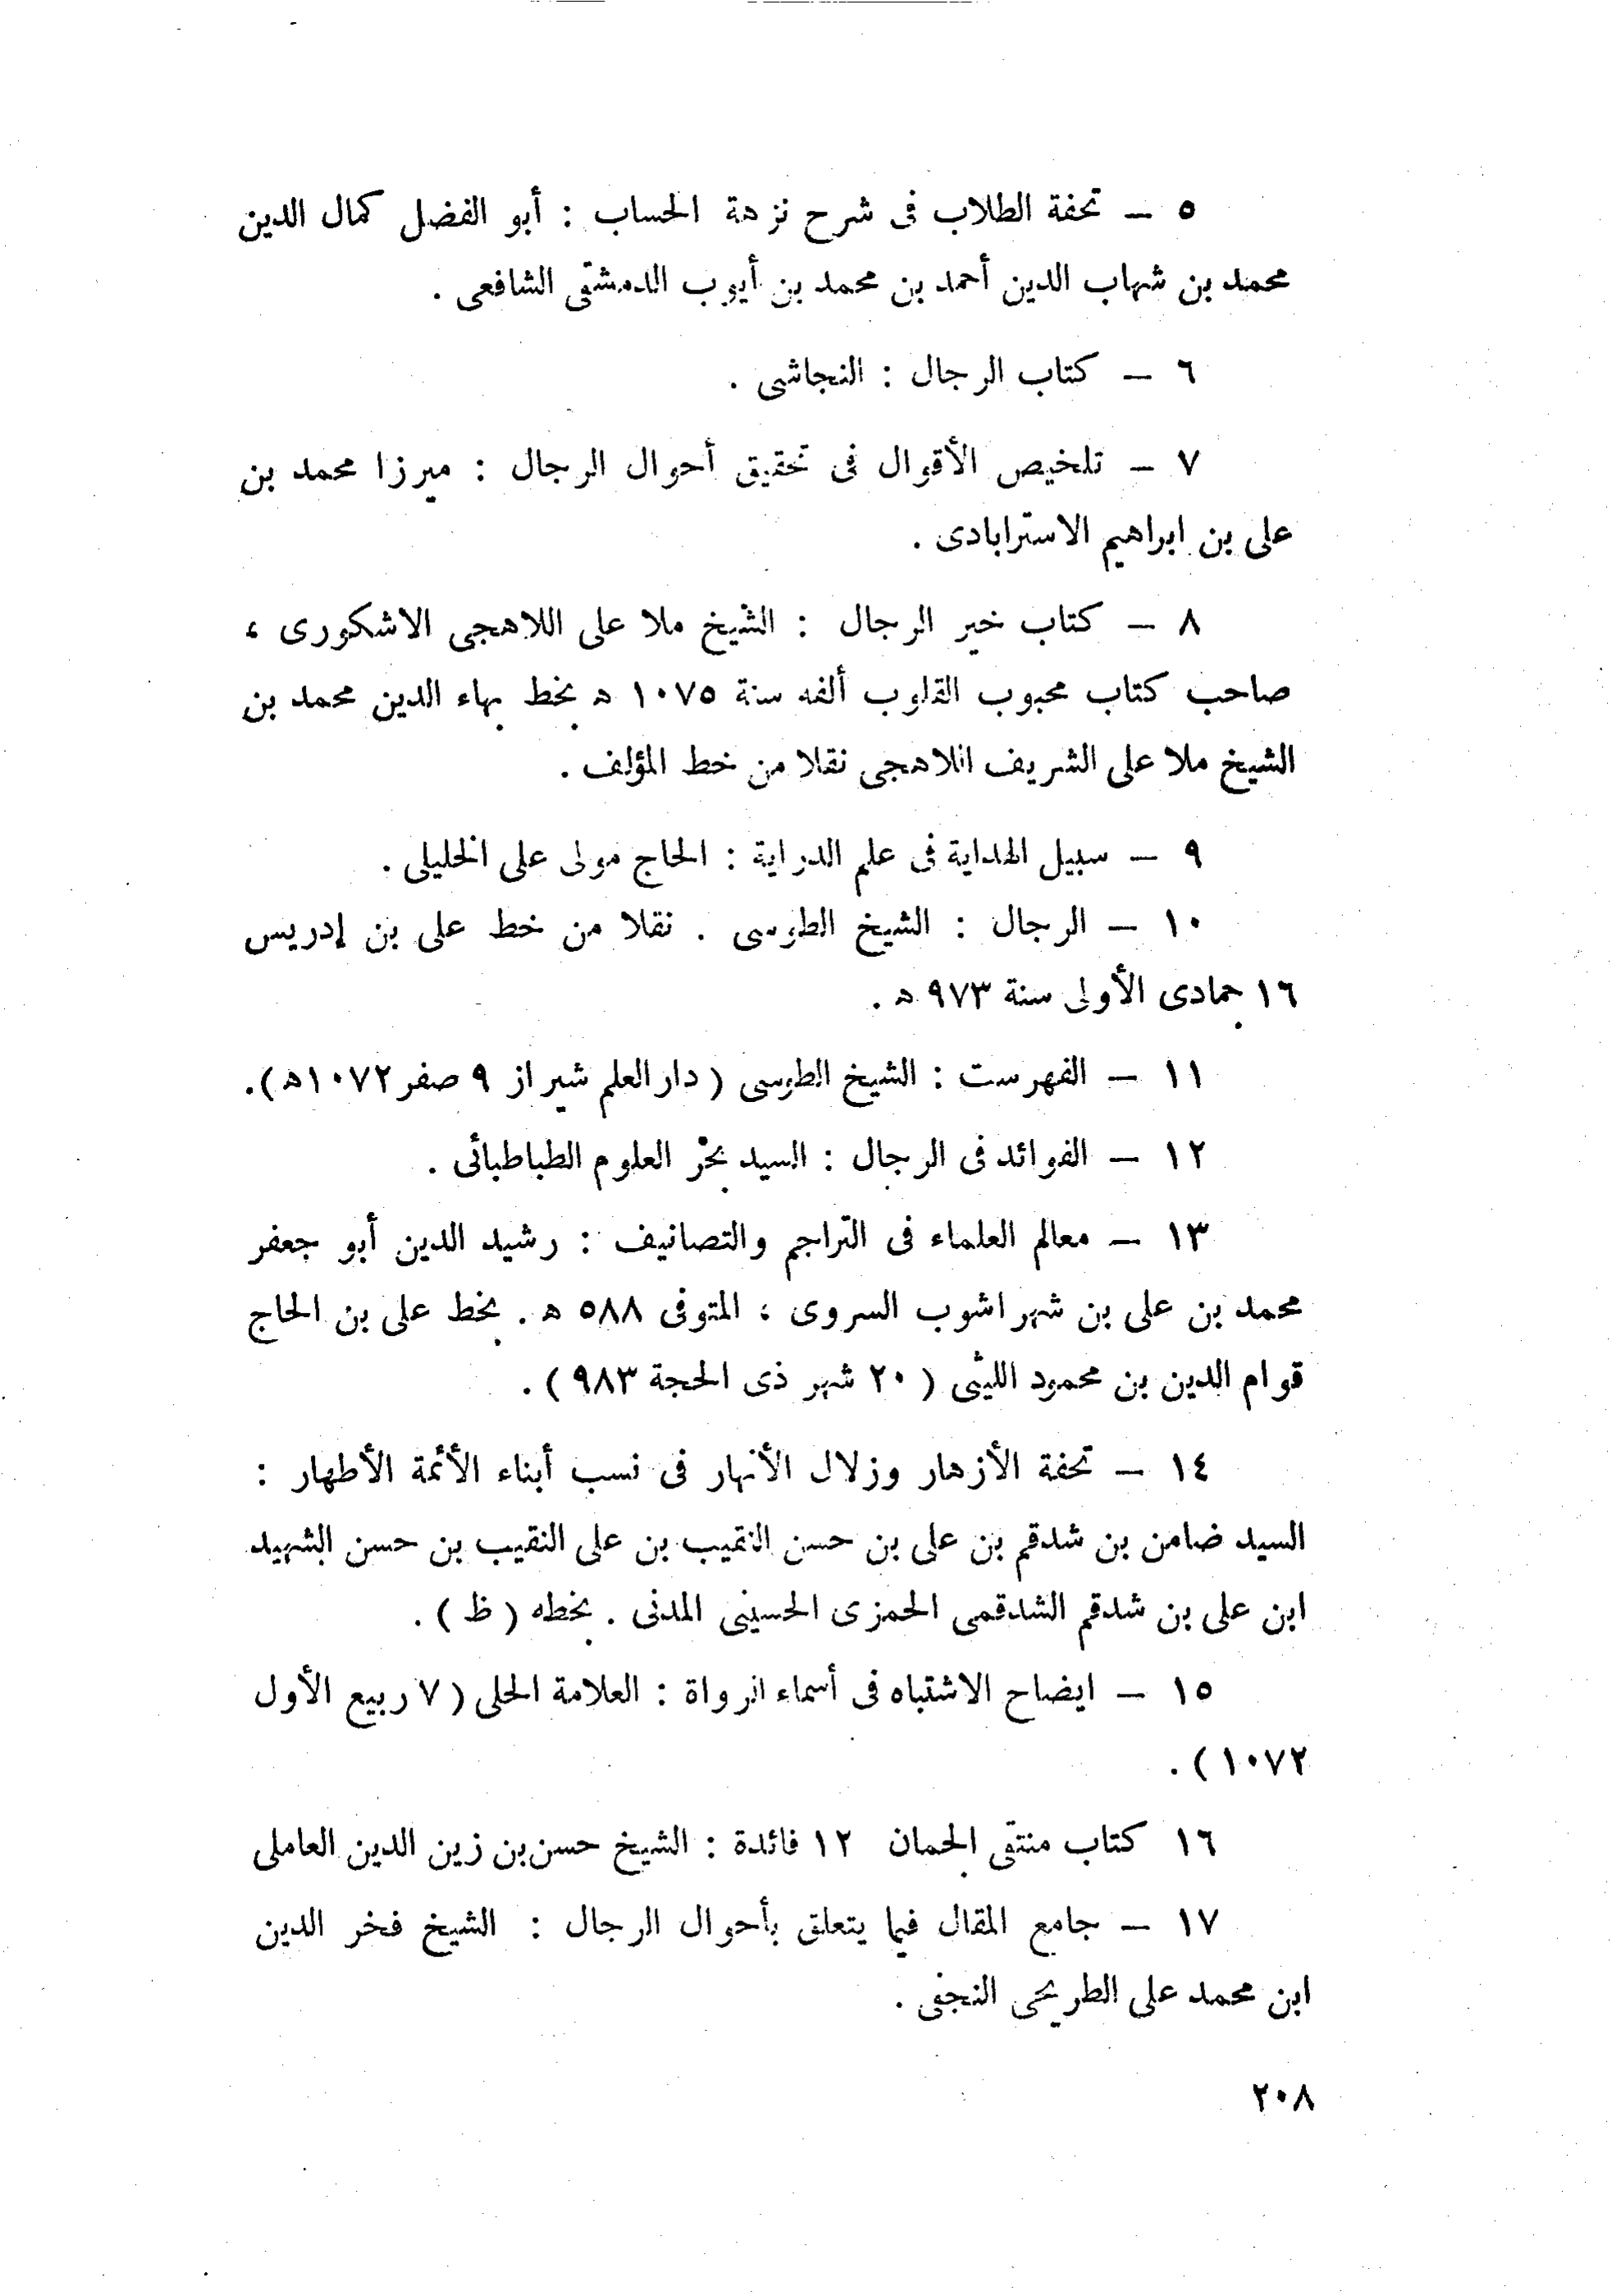 ٥ — تحفة الطلاب فى شرح نزهة الحساب : أبو الفضل كمال الدين
محمد بن شهاب الدين أحمد بن محمد بن أيوب الدمشقى الشافعى .
٦ — كتاب الرجال : النجاشى .
٧ — تلخيص الأقوال فى تحقيق أحوال الرجال : ميرزا محمد بن
على بن ابراهيم الاسترابادى .
٨ — كتاب خير الرجال : الشيخ ملا على اللاهجى الاشكورى ،
صاحب كتاب محبوب القلوب ألفه سنة ١٠٧٥ ه بخط بهاء الدين محمد بن
الشيخ ملا على الشريف اللاهجى نقلا من خط المؤلف .
٩ — سبيل الهداية فى علم الدراية : الحاج مولى على الخليلى .
١٠ — الرجال : الشيخ الطوسى . نقلا من خط على بن إدريس
١٦ جمادى الأولى سنة ٩٧٣ ه .
١١ — الفهرست : الشيخ الطوسى ( دار العلم شيراز ٩ صفر ١٠٧٢ه ) .
١٢ — الفوائد فى الرجال : السيد بحر العلوم الطباطبائى .
١٣ — معالم العلماء فى التراجم والتصانيف : رشيد الدين أبو جعفر
محمد بن على بن شهراشوب السروى ، المتوفى ٥٨٨ ه . بخط على بن الحاج
قوام الدين بن محمود الليثى ( ٢٠ شهر ذى الحجة ٩٨٣ ) .
١٤ — تحفة الأزهار وزلال الأنهار فى نسب أبناء الأئمة الأطهار :
السيد ضامن بن شدقم بن على بن حسن النقيب بن على النقيب بن حسن الشهيد
ابن على بن شدقم الشدقمى الحمزى الحسينى المدنى . بخطه ( ظ ) .
١٥ — ايضاح الاشتباه فى أسماء الرواة : العلامة الحلى ( ٧ ربيع الأول
١٠٧٢ ) .
١٦ كتاب منتقى الجمان ١٢ فائدة : الشيخ حسن بن زين الدين العاملى
١٧ — جامع المقال فيما يتعلق بأحوال الرجال : الشيخ فخر الدين
ابن محمد على الطريحى النجفى .
٢٠٨